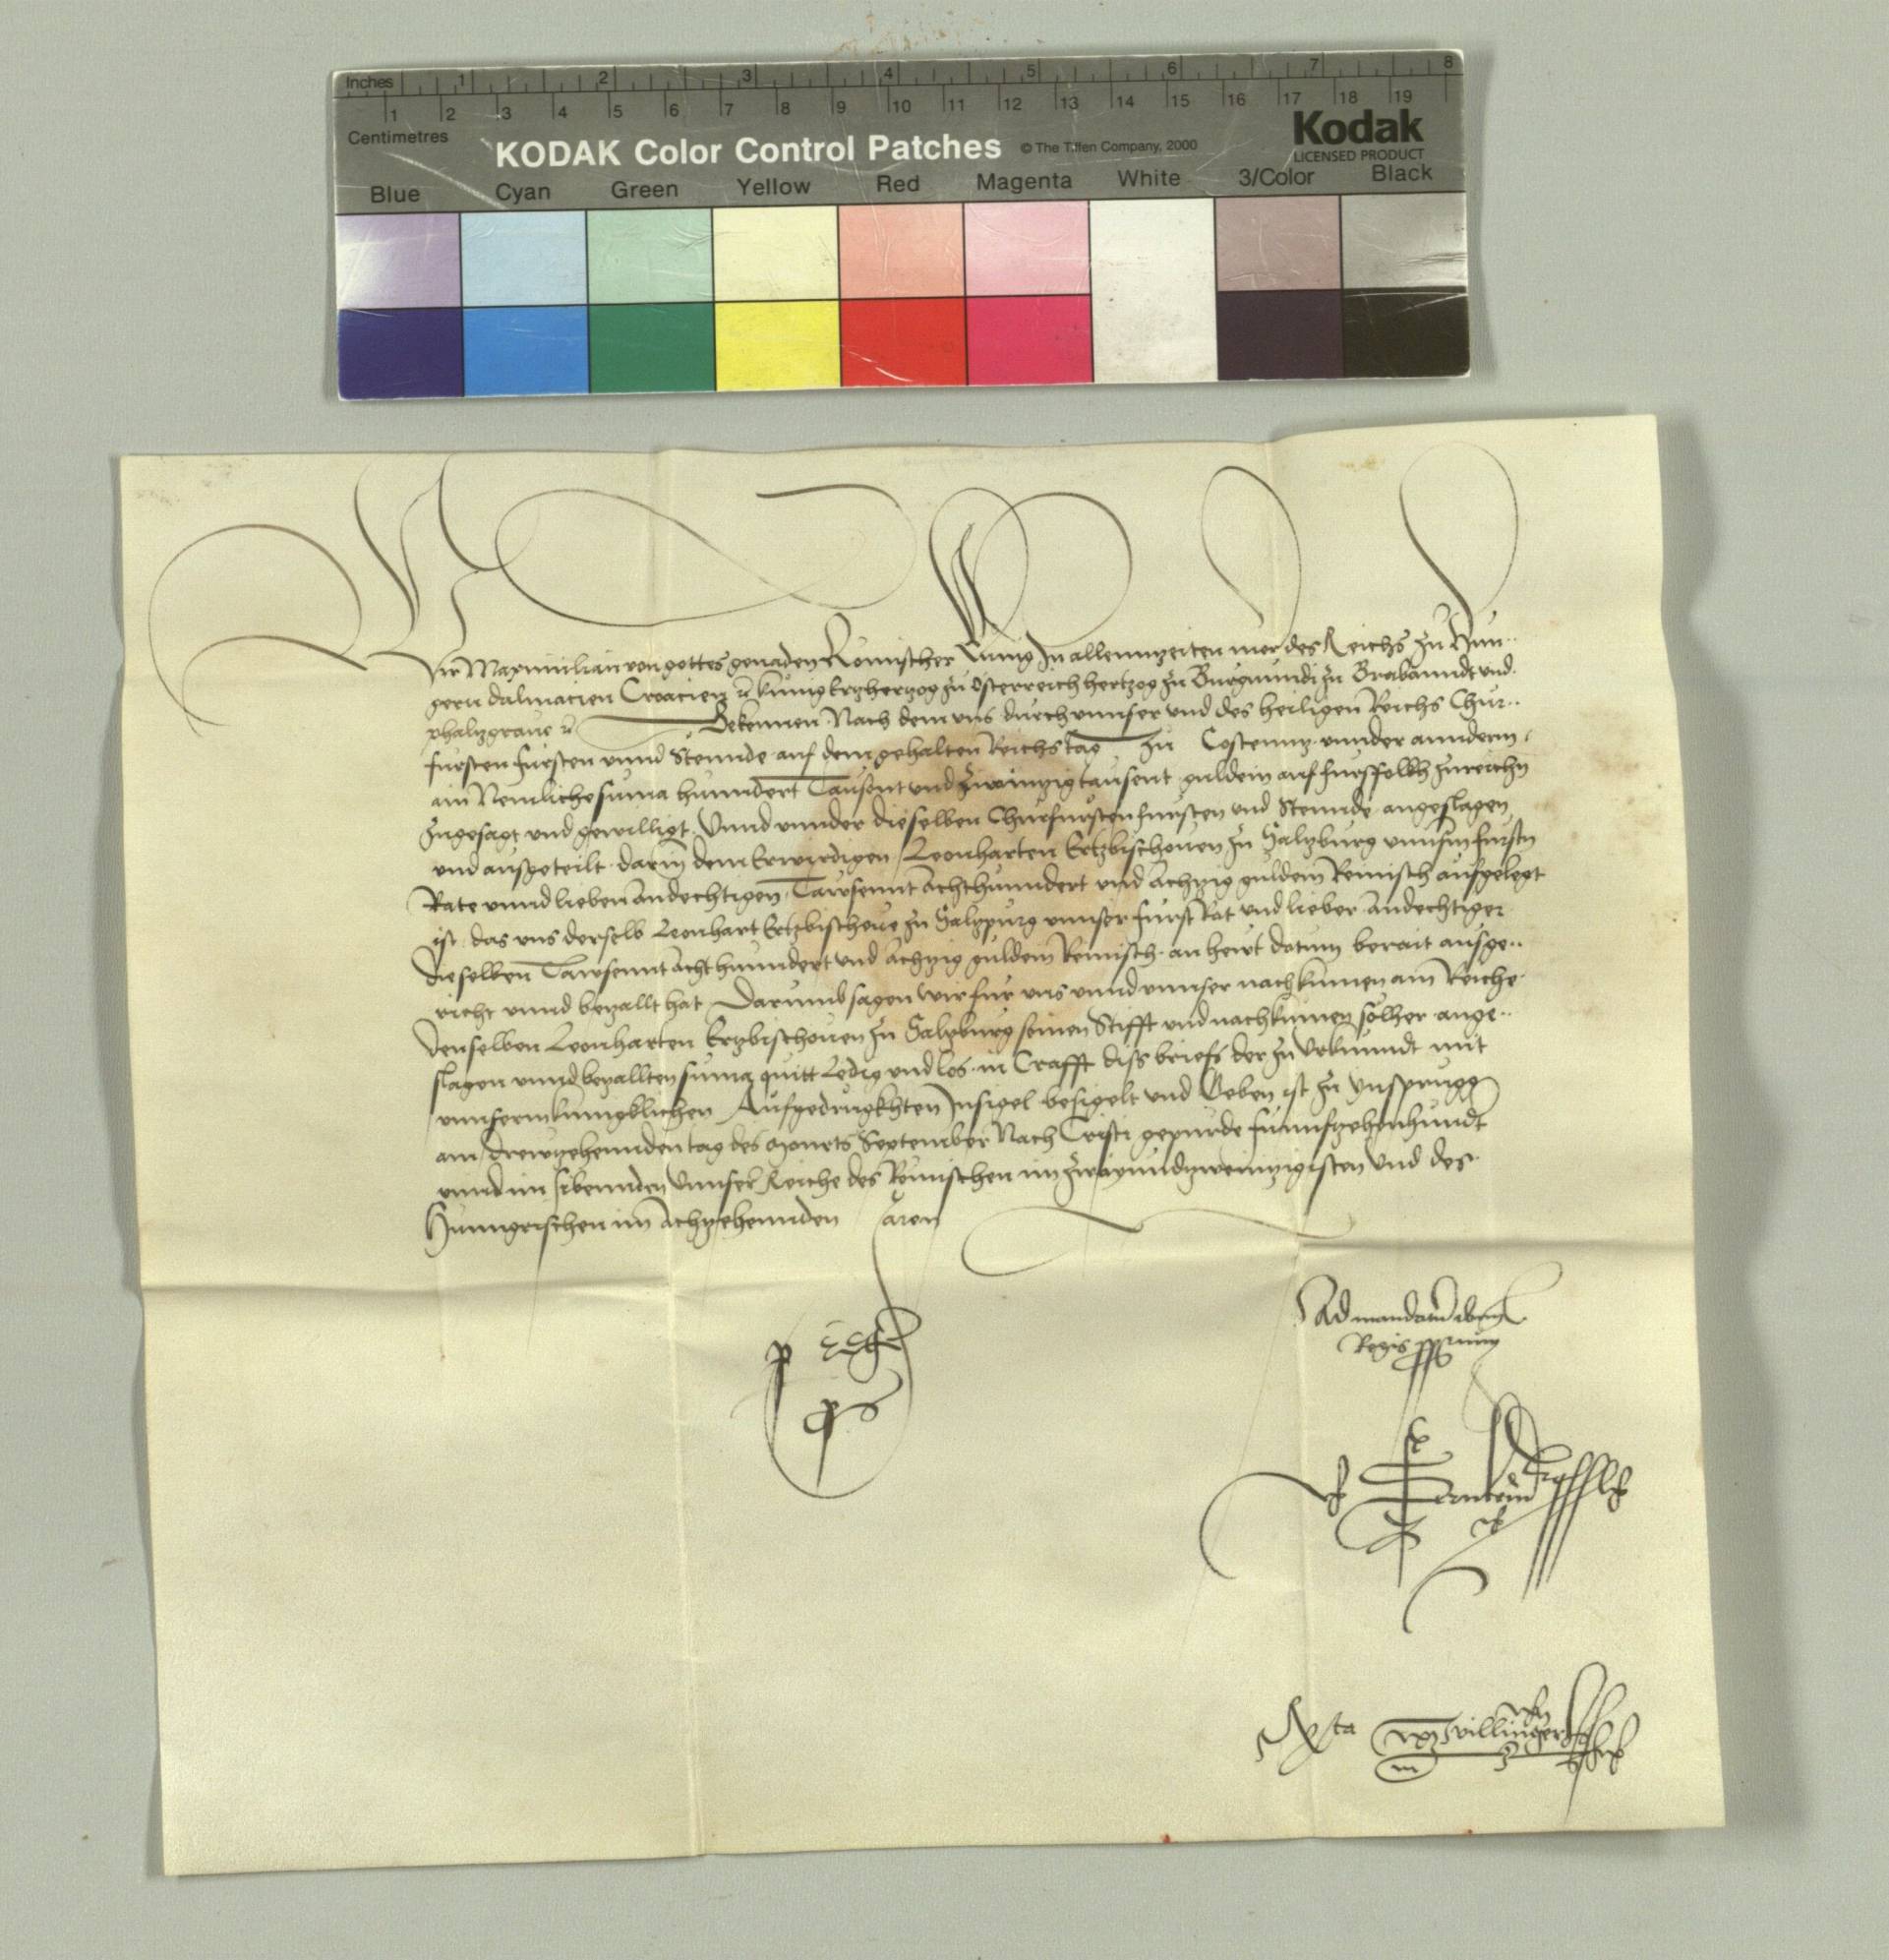 Inches 1 2 3 4 5 6 7 8
1 2 3 4 5 6 7 8 9 10 11 12 13 14 15 16 17 18 19
Centimetres
KODAK Color Control Patches © The Tiffen Company, 2000 Kodak
LICENSED PRODUCT
Blue Cyan Green Yellow Red Magenta White 3/Color Black
Wir Maximilian von gottes genaden Römischer Kunig zu allenntzeiten merer des Reichs zu Hun..
gern dalmacien Croacien kunig Ertzhertzog zu Osterreich hertzog zu Burgunndi zu Brabanndt und
phaltzgraue Bekennen Nach dem uns durch unnser und des heiligen Reichs Chur..
fursten fursten unnd Stennde auf dem gehalten Reichs tag zu Costenntz unnder annderm
ain Nemliche suma hunndert Tausent und zwaintzigtausent guldein auf fuessfolkh zuraichn
zugesagt und gewilligt Unnd unnder dieselben Churfursten fursten und Stennde angeslagen
und ausgeteilt darin dem Erwirdigen Leonharten Ertzbischouen zu Saltzburg unnserm fursten
Rate unnd lieben Andechtigen Tawsennt Achthunndert und Achtzig guldein Reinisch aufgelegt
ist das uns derselb Leonhart Ertzbischoue zu Saltzpurg unnser furst Rat und lieber Andechtiger
dieselben Tawsennt acht hunndert und Achtzig guldein Reinisch an hewt datum berait ausge..
richt unnd betzallt hat Darumb sagen wir fur uns unnd unnser nachkumen am Reiche
denselben Leonharten Ertzbischouen zu Saltzburg seinen Stifft und nachkumen solher ange..
slagen unnd betzallten suma quitt Ledig und los in Crafft diss briefs der zu Urkundt mit
unnserm kunigklichen Aufgedrugkhten Insigel besigelt und Geben ist zu Ynsprugg
am drewtzehennden tag des Monets September Nach Cristi gepurde funnfzehenhundt
unnd im sibennden Unnser Reiche des Römischen im zwayundzwaintzigisten und des
Hunngrischen im Achtzehennden Jaren
p Regem
p s
Ad mandatum domini
Regis proprium
Serntein
Rta Villinger